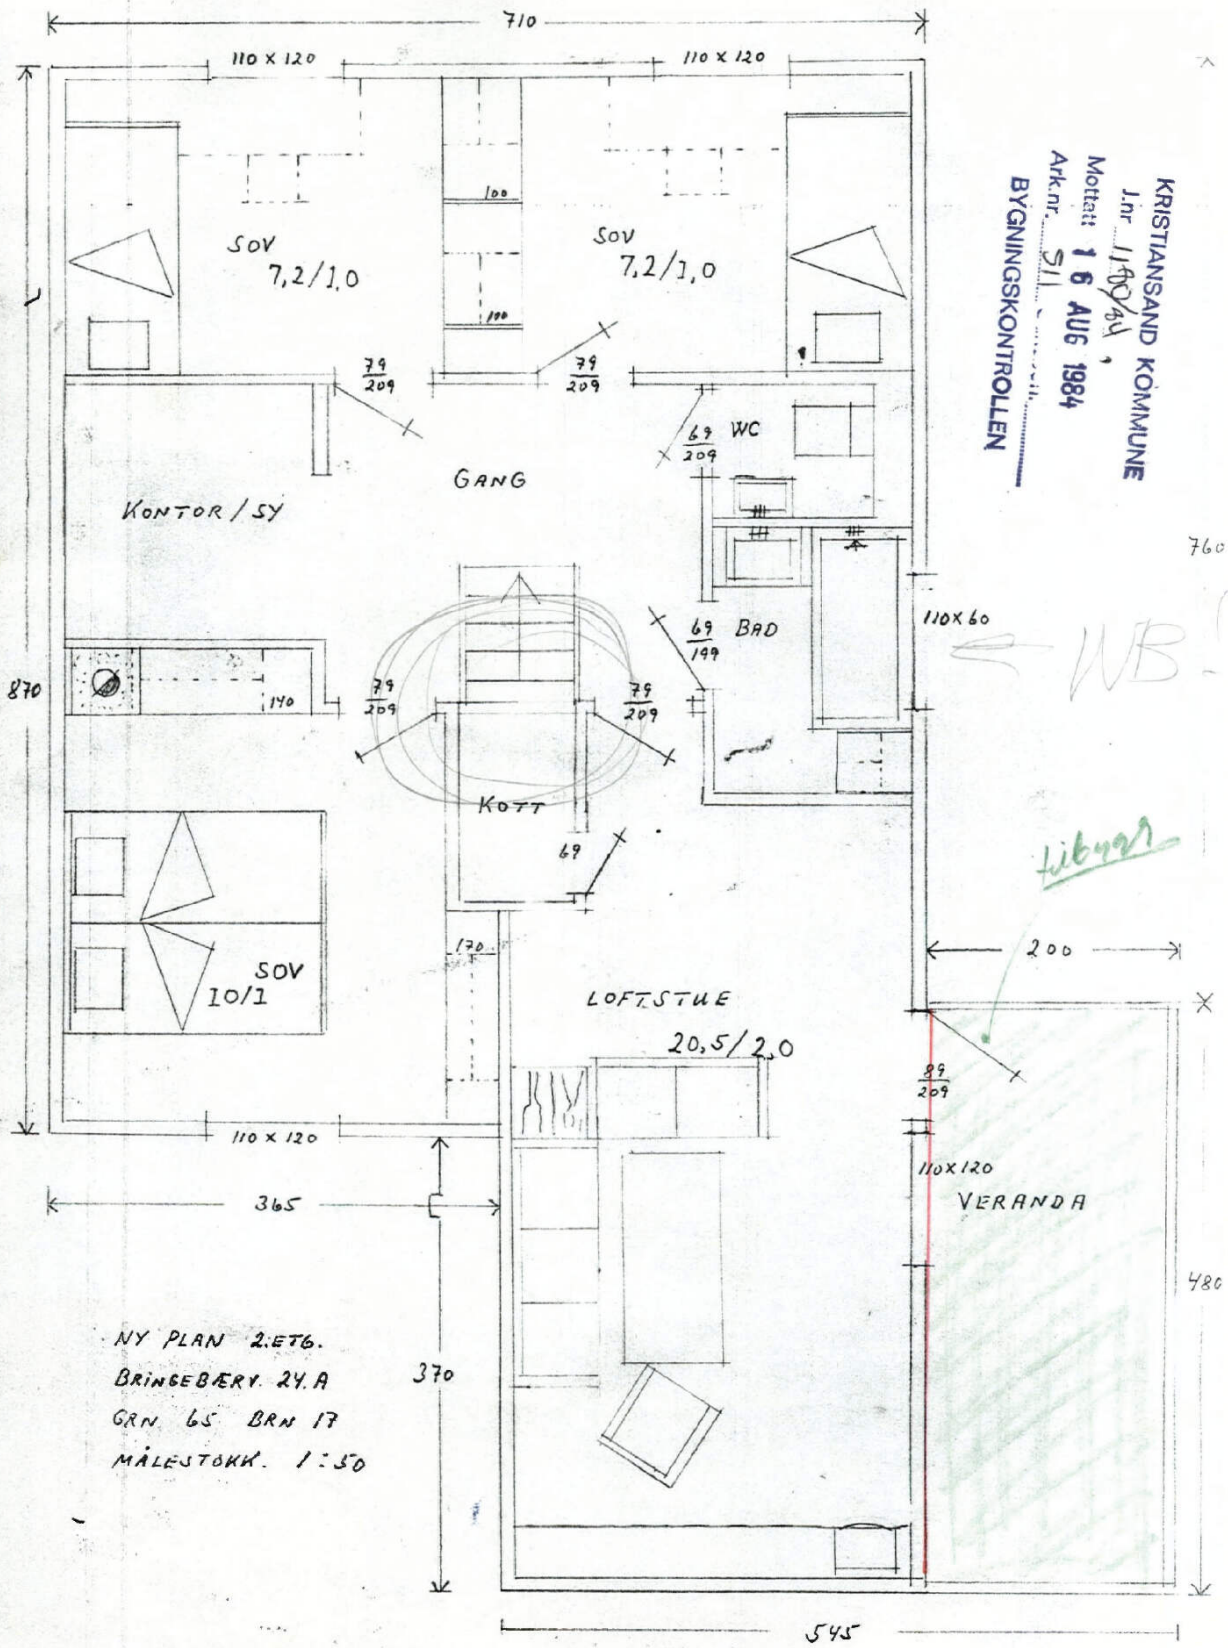 710
110 x 120
110 x 120
100
SOV
7,2/1,0
SOV
7,2/1,0
100
KRISTIANSAND KOMMUNE
J.nr 1180/84
Mottatt 16 AUG 1984
Ark.nr. 511
BYGNINGSKONTROLLEN
79
209
79
209
69
209
WC
GANG
KONTOR / SY
760
110 X 60
69
199
BAD
WB
870
140
79
209
79
209
KOTT
69
tilbygg
200
170
SOV
10/1
LOFTSTUE
20,5/2,0
89
209
110 x 120
110 X 120
VERANDA
365
480
NY PLAN 2.ETG.
BRINGEBÆRV. 24.A
GRN. 65 BRN 17
MÅLESTOKK. 1:50
370
545